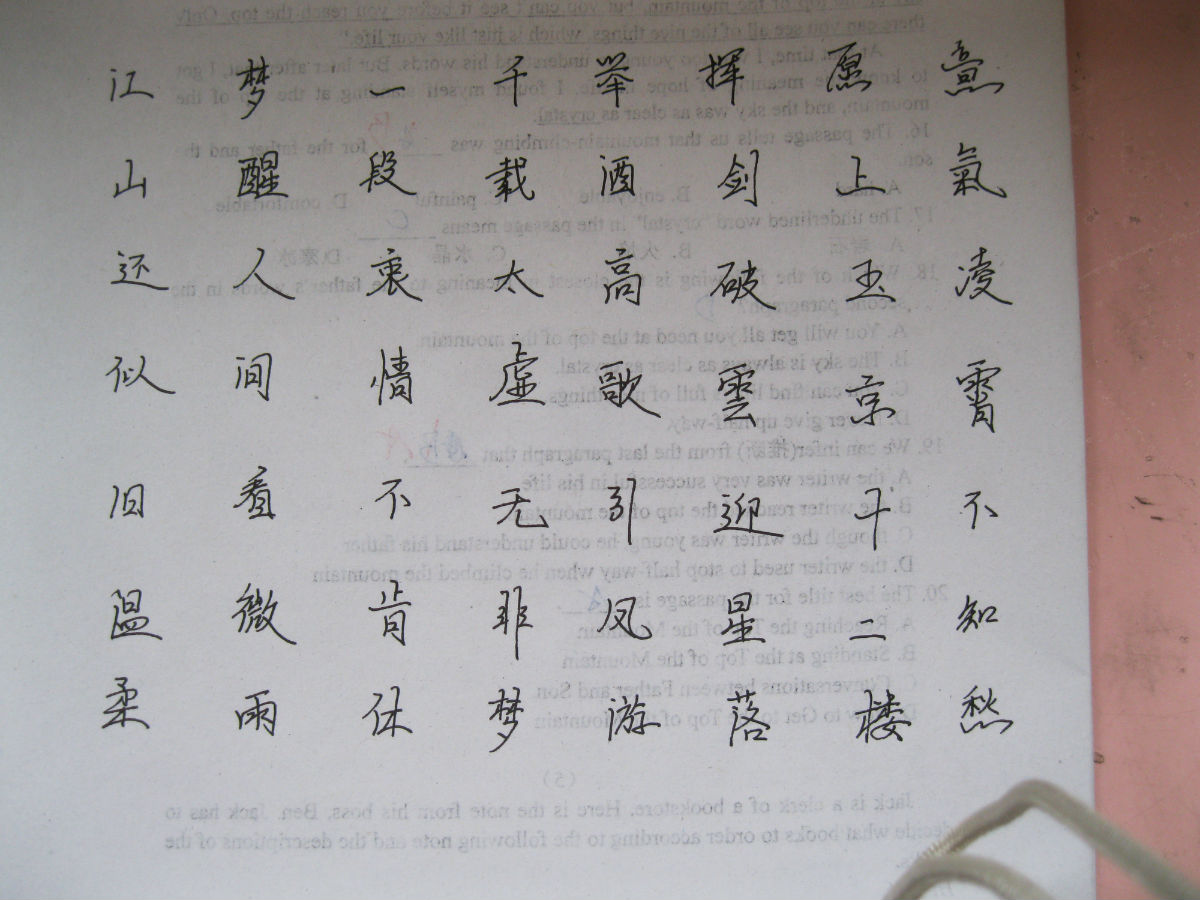 意氣凌霄不知愁
愿上玉京十二楼
挥剑破雲迎星落
举酒高歌引凤游
千载太虚无非梦
一段衷情不肯休
梦醒人间看微雨
江山还似旧温柔